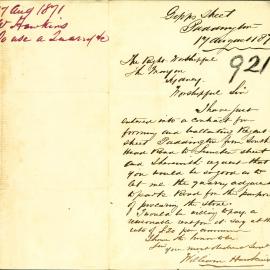 7 Aug 1871
W Hawkins
to use a Quarry &c
Gipps Street
Paddington
17 August 187
921
The Right Worshipful
The Mayor
Sydney
Worshipful Sir
I have just
entered into a contract for
forming and ballasting
street Paddington from South
Head Road to
and I herewith request that
you would be so good as to
let me the quarry adjacent
to Road for the purpose
of procuring the stone.
I would be willing to pay a
reasonable say at the
rate of £20 per annum
I have the honor to be
Sir
your most obedient Servt
William Hawkins